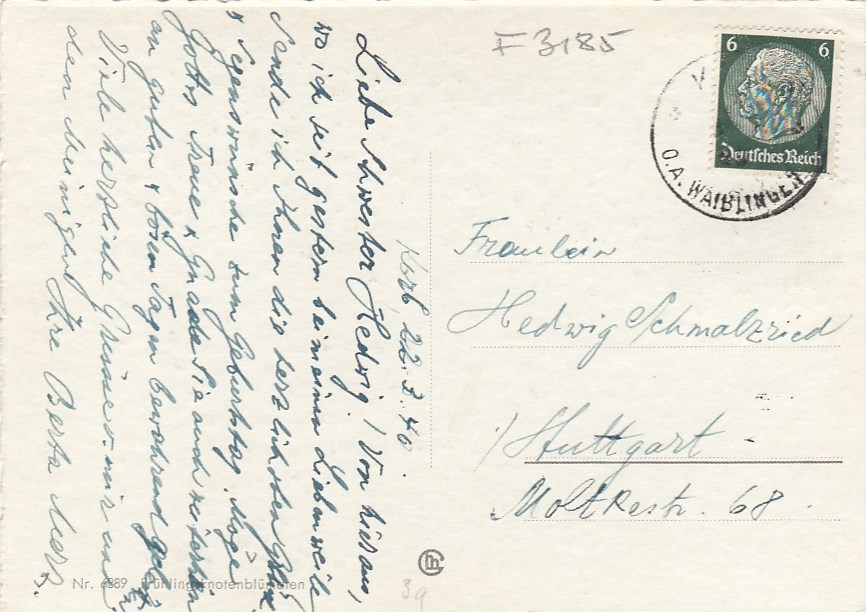 F 3185
6 6
Deutsches Reich
O.A. WAIBLINGEN
Korb, 22.3.40.
Liebe Schwester Hedwig! Von hier aus,
wo ich seit gestern bei meinen Lieben weile
sende ich Ihnen die herzlichsten Glück
& Segenswünsche zum Geburtstag. Möge
Gottes Treue & Gnade Sie auch weiterhin
an guten & bösen Tagen bewahrend
Viele herzliche Grüsse v. mir und
den Meinigen Ihre Berta Merz.
Fräulein
Hedwig Schmalzried
Stuttgart
Moltkestr. 68.
Nr. 6889 Frühlingsknotenblumen
39